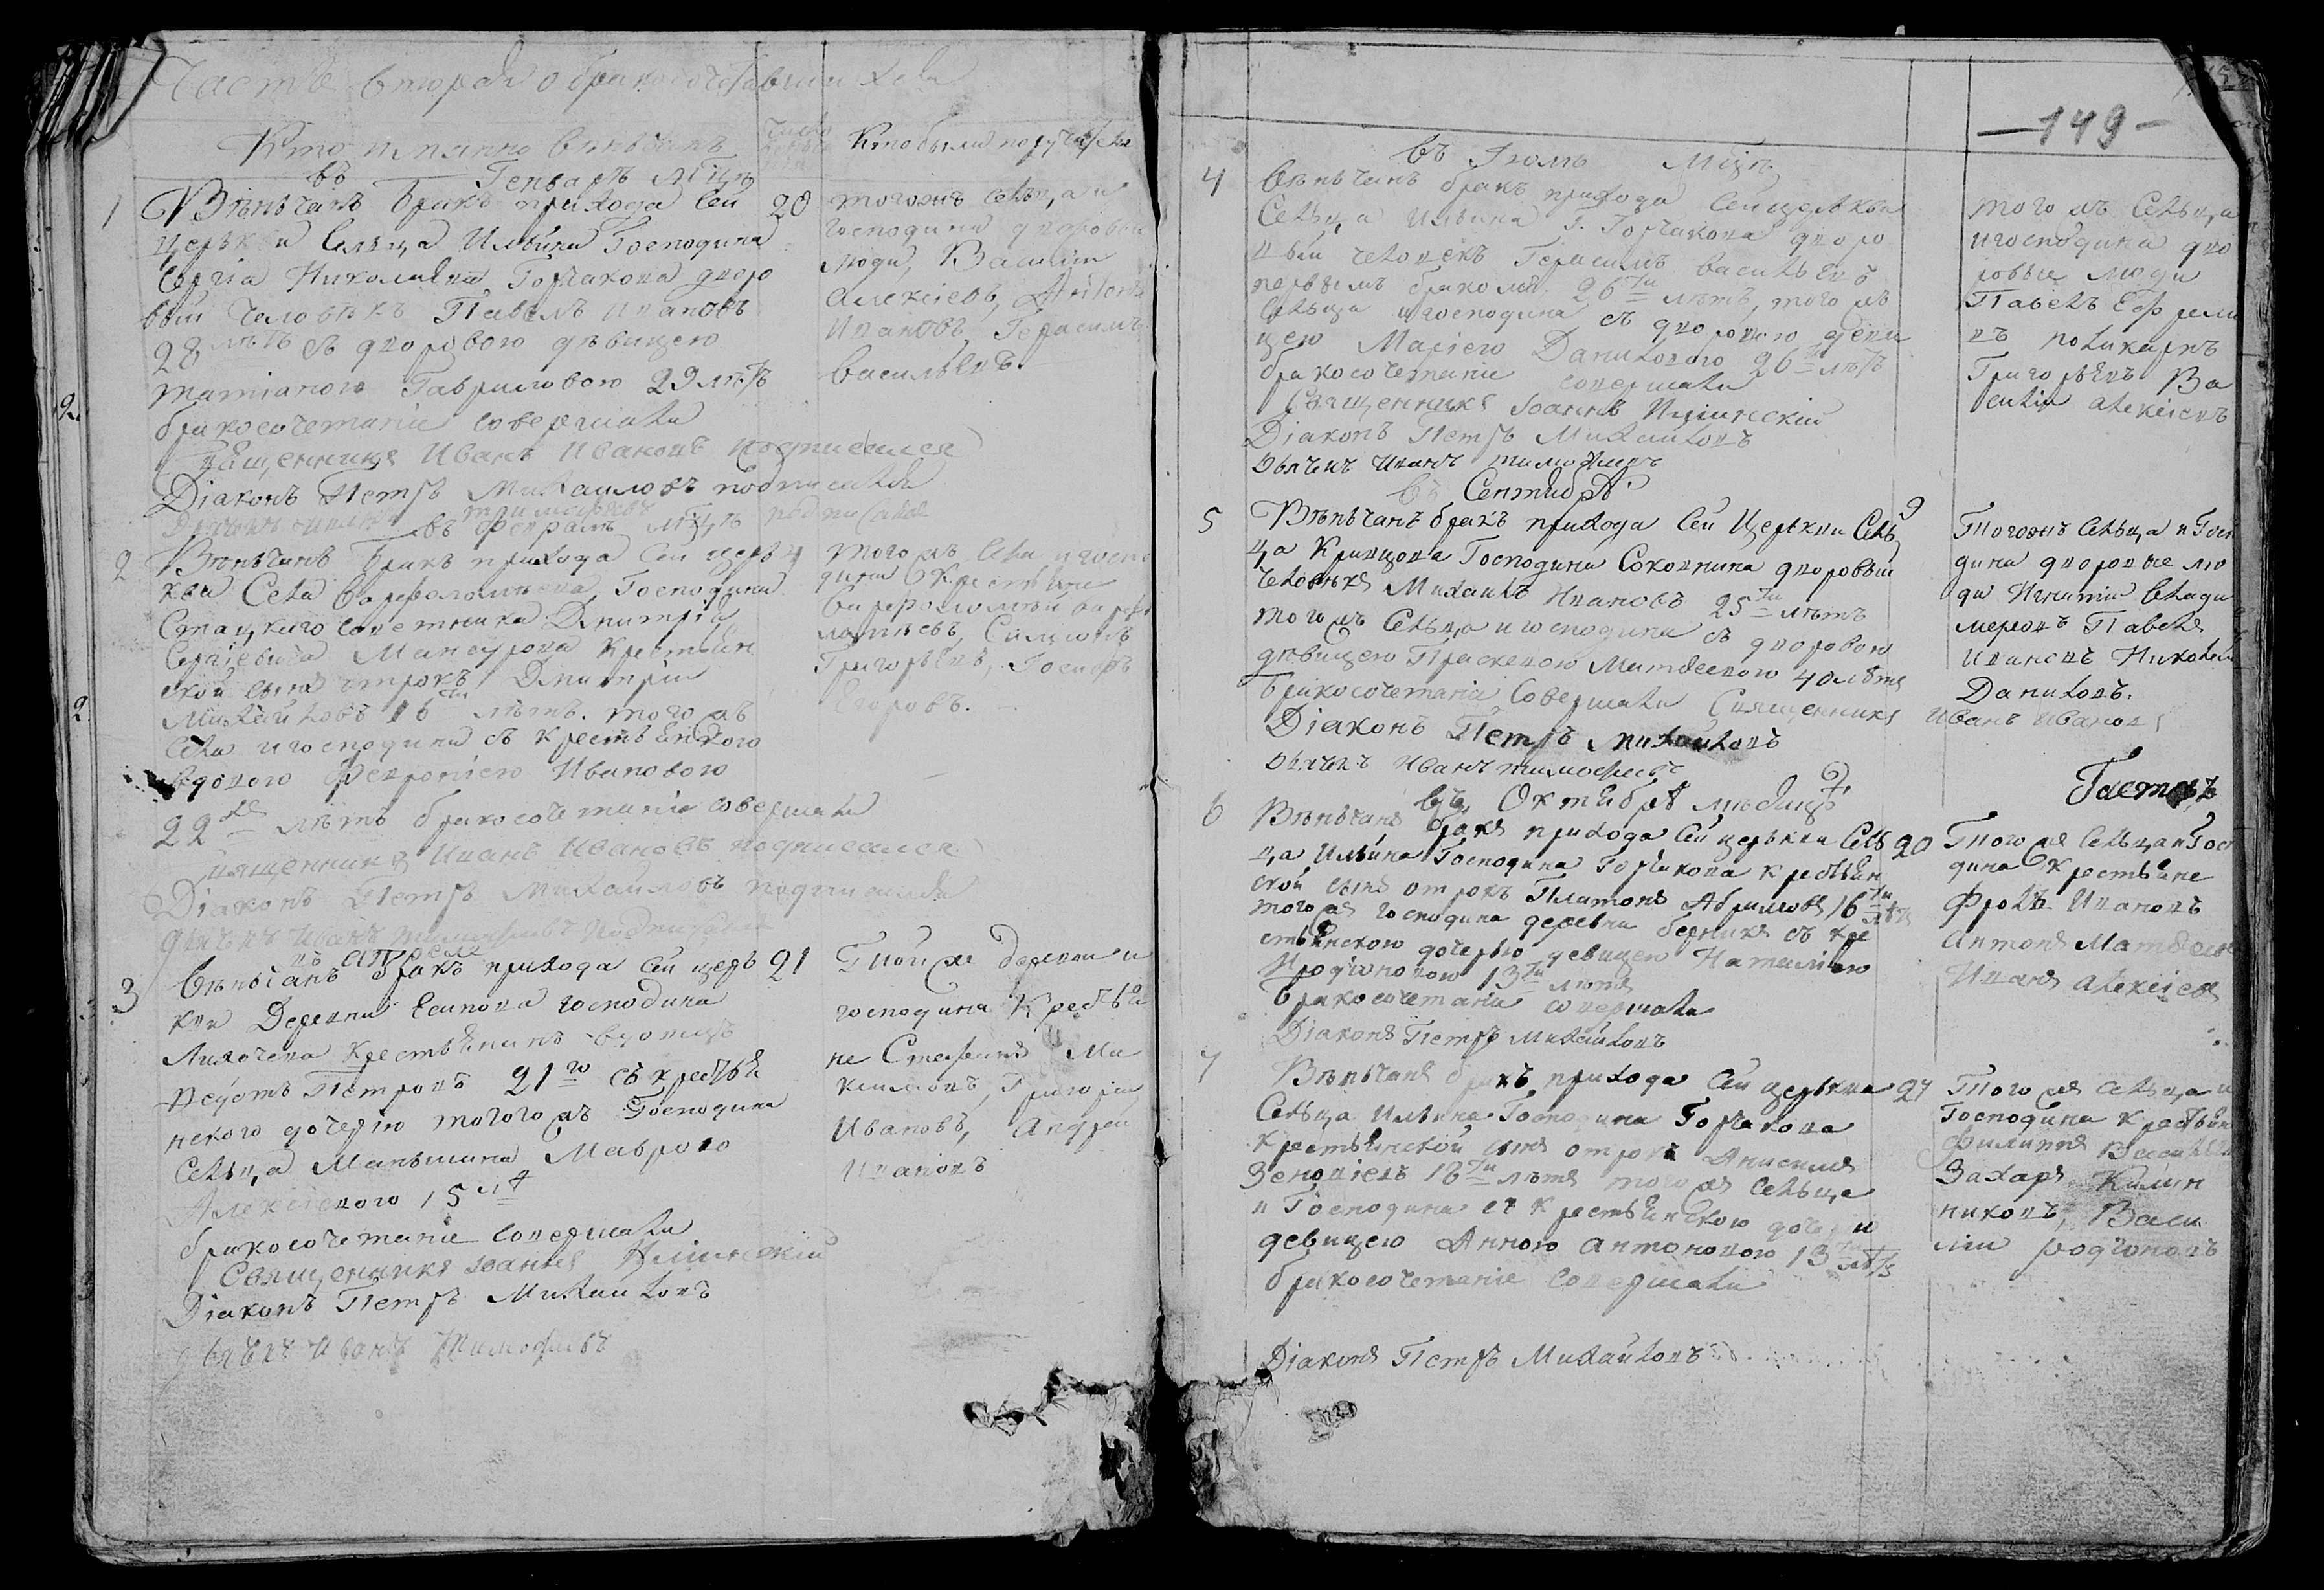 Часть вторая о бракосочетавшихся
Кто имянно венчанъ
Кто были поручители
въ Генваре мцѣ
1 Вѣнчанъ бракъ прихода сей 20
церькви Сельца Ильина Господина
Сергіа Николаева Горчакова дворо
вый человѣкъ Павелъ Ивановъ
28 лѣтъ съ дворовою дѣвицею
Татіаною Гавриловою 29 лѣтъ
бракосочетаніе совершали
Священникъ Иванъ Ивановъ подписался
Діаконъ Петръ Михаиловъ подписался
тогожъ сельца и
господина дворовыи
люди, Василии
Алексіевъ, Антонъ
Ивановъ, Герасимъ
Васильевъ.
въ Февралѣ мцѣ
2 Вѣнчанъ бракъ прихода сей церь 4
кви Села Варфоломѣева Господина
Стацкаго советника Дмитрія
Сергіевича Мансурова крестьян
ской сынъ отрокъ Дмитрій
Михайловъ 16ти лѣтъ. того жъ
села и господина съ крестьянскою
вдовою Феврониею Ивановою
22хъ лѣтъ бракосочетание совершали
Священникъ Иванъ Ивановъ подписался
Діаконъ Петръ Михайловъ подписался
дьячекъ Иванъ Тимофѣевъ подписался
того жъ села и госпо
дина Крестьяни
Варфоломѣй Варфо
ломѣевъ, Симіонъ
Григорьевъ, Іосифъ
Егоровъ.
въ апреле
3 Вѣнчанъ бракъ прихода сей церь 21
кви Деревни Есипова господина
Лихачева крестьянинъ вдовецъ
Федотъ Петровъ 21го съ крестья
нскою дочерию тогожъ Господина
Сельца Маньшина Маврою
Алексіевою 15 лѣ
бракосочетание совершали
Священникъ Іоаннъ Ильинскій
Діаконъ Петръ Михаиловъ
дьячекъ Иванъ Тимофѣевъ
Тойже деревни и
господина Крестья
не Стефанъ Ми
Григорій
Ивановъ, Андрей
Ивановъ
—149—
въ Іюлѣ Мцѣ
4 Вѣнчанъ бракъ прихода сей церькви
Сельца Ильина Г. Горчакова дворо
вый человекъ Герасимъ Васильевъ
первымъ бракомъ 26ти лѣтъ, того жъ
Сельца и господина съ дворовою деви
цею Марією Даниловою 26ти лѣтъ
бракосочетание совершали
Священникъ Іоаннъ Ильинскій
Діаконъ Петръ Михайловъ
дьячекъ Иванъ Тимофѣевъ
того жъ Сельца
и господина дво
ровые люди
Павелъ Ефреми
въ Поликарпъ
Григорьевъ Ва
силій Алексіевъ
въ Сентябрѣ
5 Вѣнчанъ бракъ прихода сей Церькви Сель 9
ца Кривцова Господина Соковнина дворовый
человѣкъ Михаилъ Ивановъ 25ти лѣтъ
того жъ Сельца и господина съ дворовою
дѣвицею Праскевою Матвеевою 40 лѣтъ
Бракосочетание Совершали Священникъ Иванъ Ивановъ
Діаконъ Петръ Михайловъ
дьячекъ Иванъ Тимофѣевъ
Тогожъ Сельца и Госп
дина дворовые лю
ди Игнатій Влади
меровъ Павелъ
Ивановъ Николай
Даниловъ.
въ Октябрѣ мѣсяцѣ
6 Вѣнчанъ бракъ прихода сей церькви Сель 20
ца Ильина Господина Горчакова крестьян
ской сынъ отрокъ Платонъ Абрамовъ 16ти лѣтъ
того жъ господина деревни съ кре
стьянскою дочерью девицею Наталіею
Иродіоновою 13ти лѣтъ
Бракосочетание совершали
Діаконъ Петръ Михайловъ
Того жъ Сельца и Госп
дина Крестьяне
Фролъ Ивановъ
Антонъ Матвеевъ
Иванъ Алексіевъ
7 Вѣнчанъ бракъ прихода сей церькви 27
Сельца Ильина Господина Горчакова
крестьянской сынъ отрокъ Анисимъ
Зеновіевъ 18ти лѣтъ того жъ Сельца
и Господина съ крестьянскою дочерью
девицею Анною Антоновою 13ти лѣтъ
бракосочетание совершали
Діаконъ Петръ Михайловъ
Того жъ сельца и
Господина крестьян
Филиппъ Василье
Захаръ Калин
никовъ, Васи
лій Родіоновъ